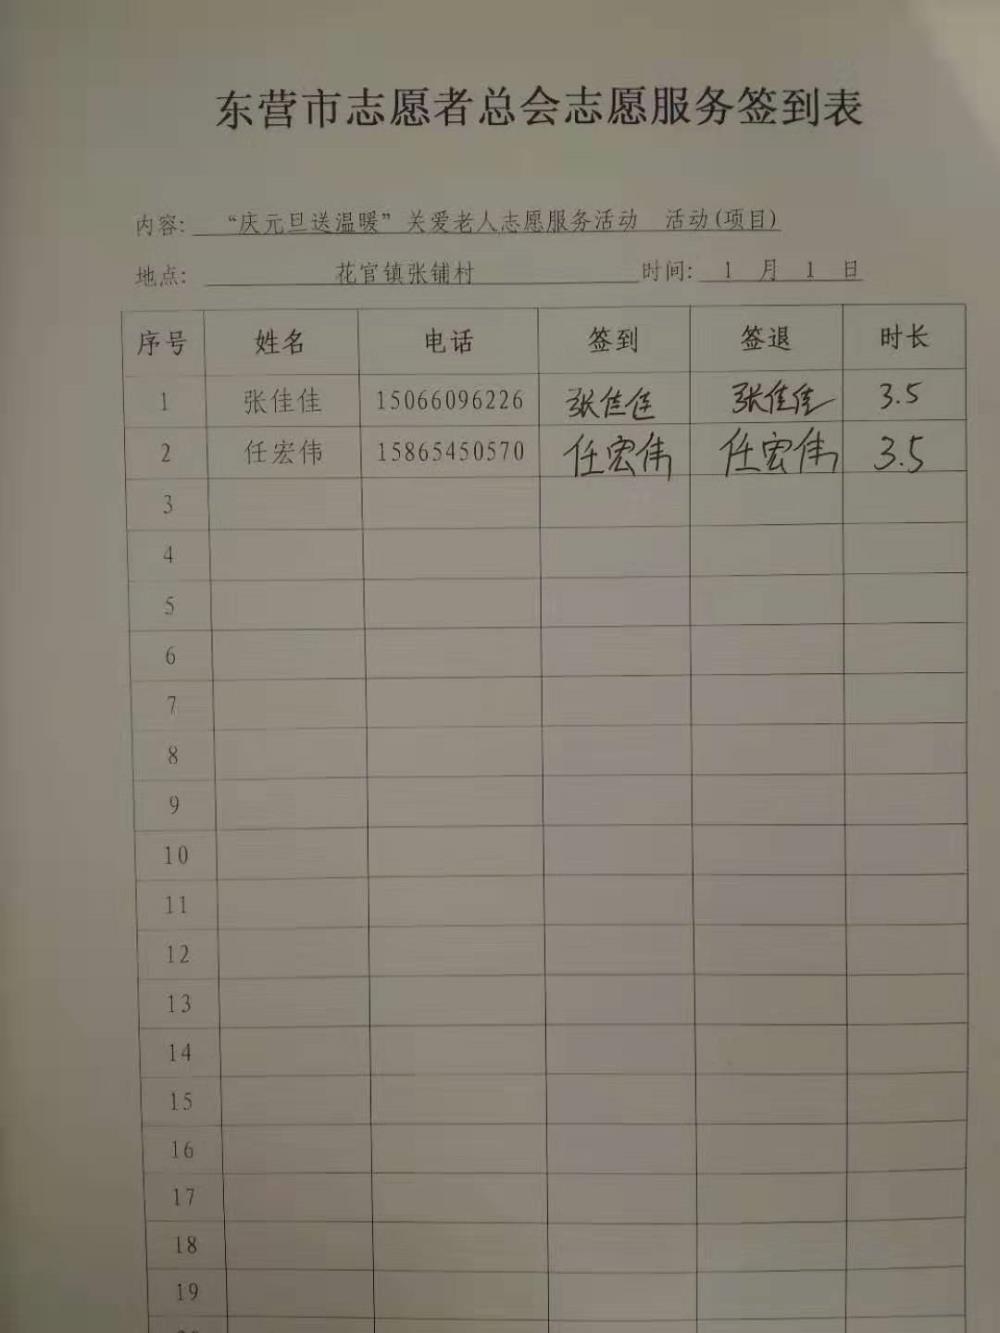 东营市志愿者总会志愿服务签到表
内容: “庆元旦送温暖”关爱老人志愿服务活动 活动(项目)
地点: 花官镇张铺村 时间: 1 月 1 日
序号 姓名 电话 签到 签退 时长
1 张佳佳 15066096226 张佳佳 张佳佳 3.5
2 任宏伟 15865450570 任宏伟 任宏伟 3.5
3
4
5
6
7
8
9
10
11
12
13
14
15
16
17
18
19